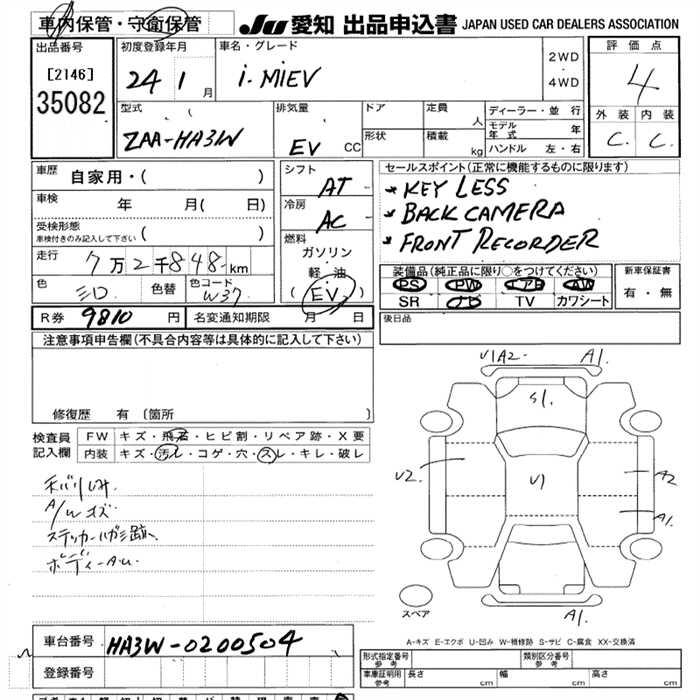 車内保管・守衛保管
JU 愛知 出品申込書 JAPAN USED CAR DEALERS ASSOCIATION
出品番号
[2146]
35082
初度登録年月
24 1 月
車名・グレード
i-MiEV
2WD
4WD
評価点
4
外装 内装
C. C.
型式
ZAA-HA3W
排気量
EV CC
ドア
形状
定員 人
積載 kg
ディーラー・並行
モデル年式 年
ハンドル 左・右
車歴
自家用・( )
車検 年 月( 日)
受検形態
車検付きのみ記入して下さい ( )
走行 7万2千848km
色 シロ
色替
色コード W37
シフト AT
冷房 AC
燃料
ガソリン
軽・油
(EV)
セールスポイント(正常に機能するものに限ります)
* KEY LESS
* BACK CAMERA
* FRONT RECORDER
装備品(純正品に限り○をつけてください)
PS PW エアB AW
SR ナビ TV カワシート
新車保証書
有・無
R券 9810 円
名変通知期限 月 日
後日品
注意事項申告欄(不具合内容等は具体的に記入して下さい)
修復歴 有 〔箇所 〕
検査員記入欄
FW キズ・飛石・ヒビ割・リペア跡・X要
内装 キズ・汚レ・コゲ・穴・スレ・キレ・破レ
A/Wキズ
ステッカーハガシ跡
ボディーAU
V1A2 A1.
S1.
U2 U1 A2
A1.
A1.
スペア
A-キズ E-エクボ U-凹み W-補修跡 S-サビ C-腐食 XX-交換済
車台番号 HA3W-0200504
登録番号
形式指定番号 参考
類別区分番号 参考
車庫証明用 参考 長さ cm 幅 cm 高さ cm